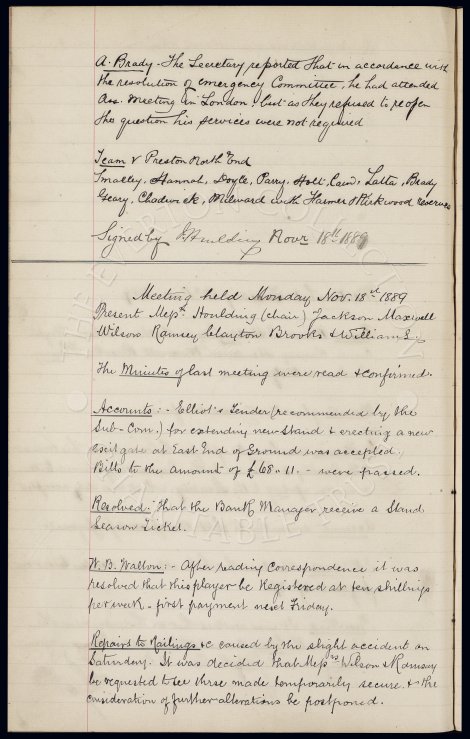 A. Brady - The Secretary reported that in accordance with
the resolution of emergency Committee, he had attended
Ass. Meeting in London, but as they refused to reopen
the question his services were not required
Team v Preston North End
Smalley, Hannah, Doyle, Parry, Holt, Cain, Latta, Brady
Geary, Chadwick, Milward with Farmer & Kirkwood reserves
Signed by J Houlding Novr 18th 1889
Meeting held Monday Nov. 18th 1889
Present Messrs Houlding (chair) Jackson Maxwell
Wilson Ramsey Clayton Brooks & Williams.
The Minutes of last meeting were read & confirmed.
Accounts: - Elliot's Tender (recommended by the
Sub-Com.) for extending new Stand & erecting a new
exit gate at East End of Ground was accepted.
Bills to the amount of £68-11- were passed.
Resolved: That the Bank Manager receive a Stand
Season Ticket.
W. B. Walton: - After reading Correspondence it was
resolved that this player be Registered at ten shillings
per week - first payment next Friday.
Repairs to Railings &c caused by the slight accident on
Saturday. It was decided that Messrs Wilson & Ramsey
be requested to see these made temporarily secure & the
consideration of further alterations be postponed.